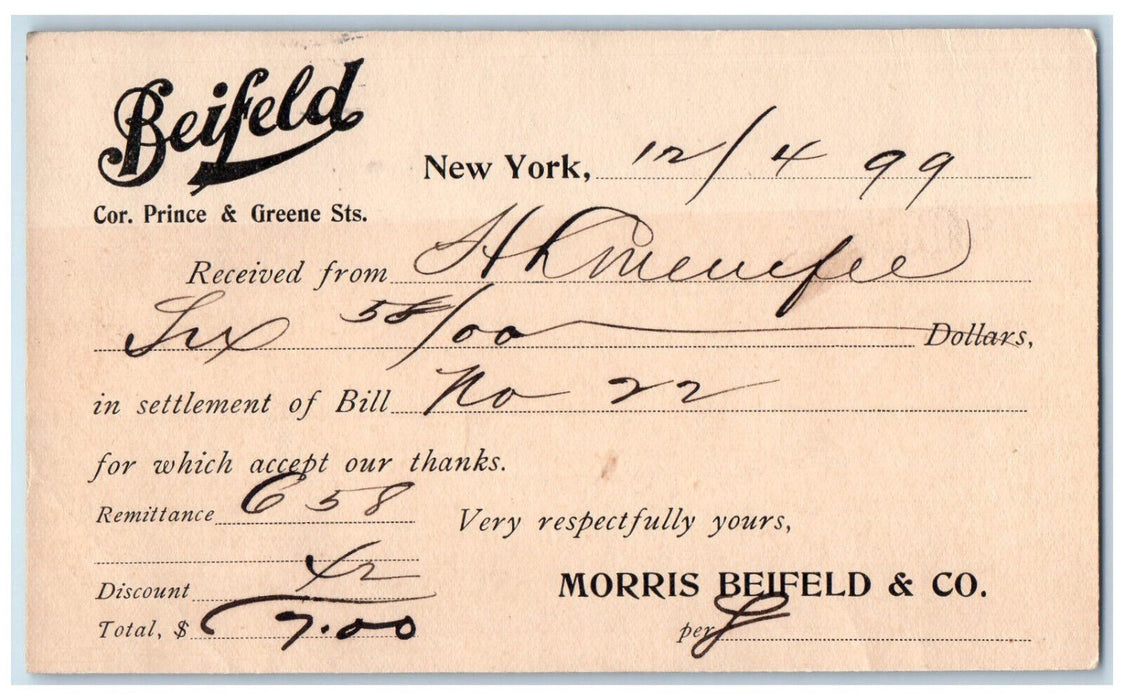 Beifeld
Cor. Prince & Greene Sts.
New York, 12/4 99
Received from H L Menefee
Six 58/00 Dollars,
in settlement of Bill No 22
for which accept our thanks.
Remittance 6 58
Very respectfully yours,
Discount 42
MORRIS BEIFELD & CO.
Total, $ 7.00
per